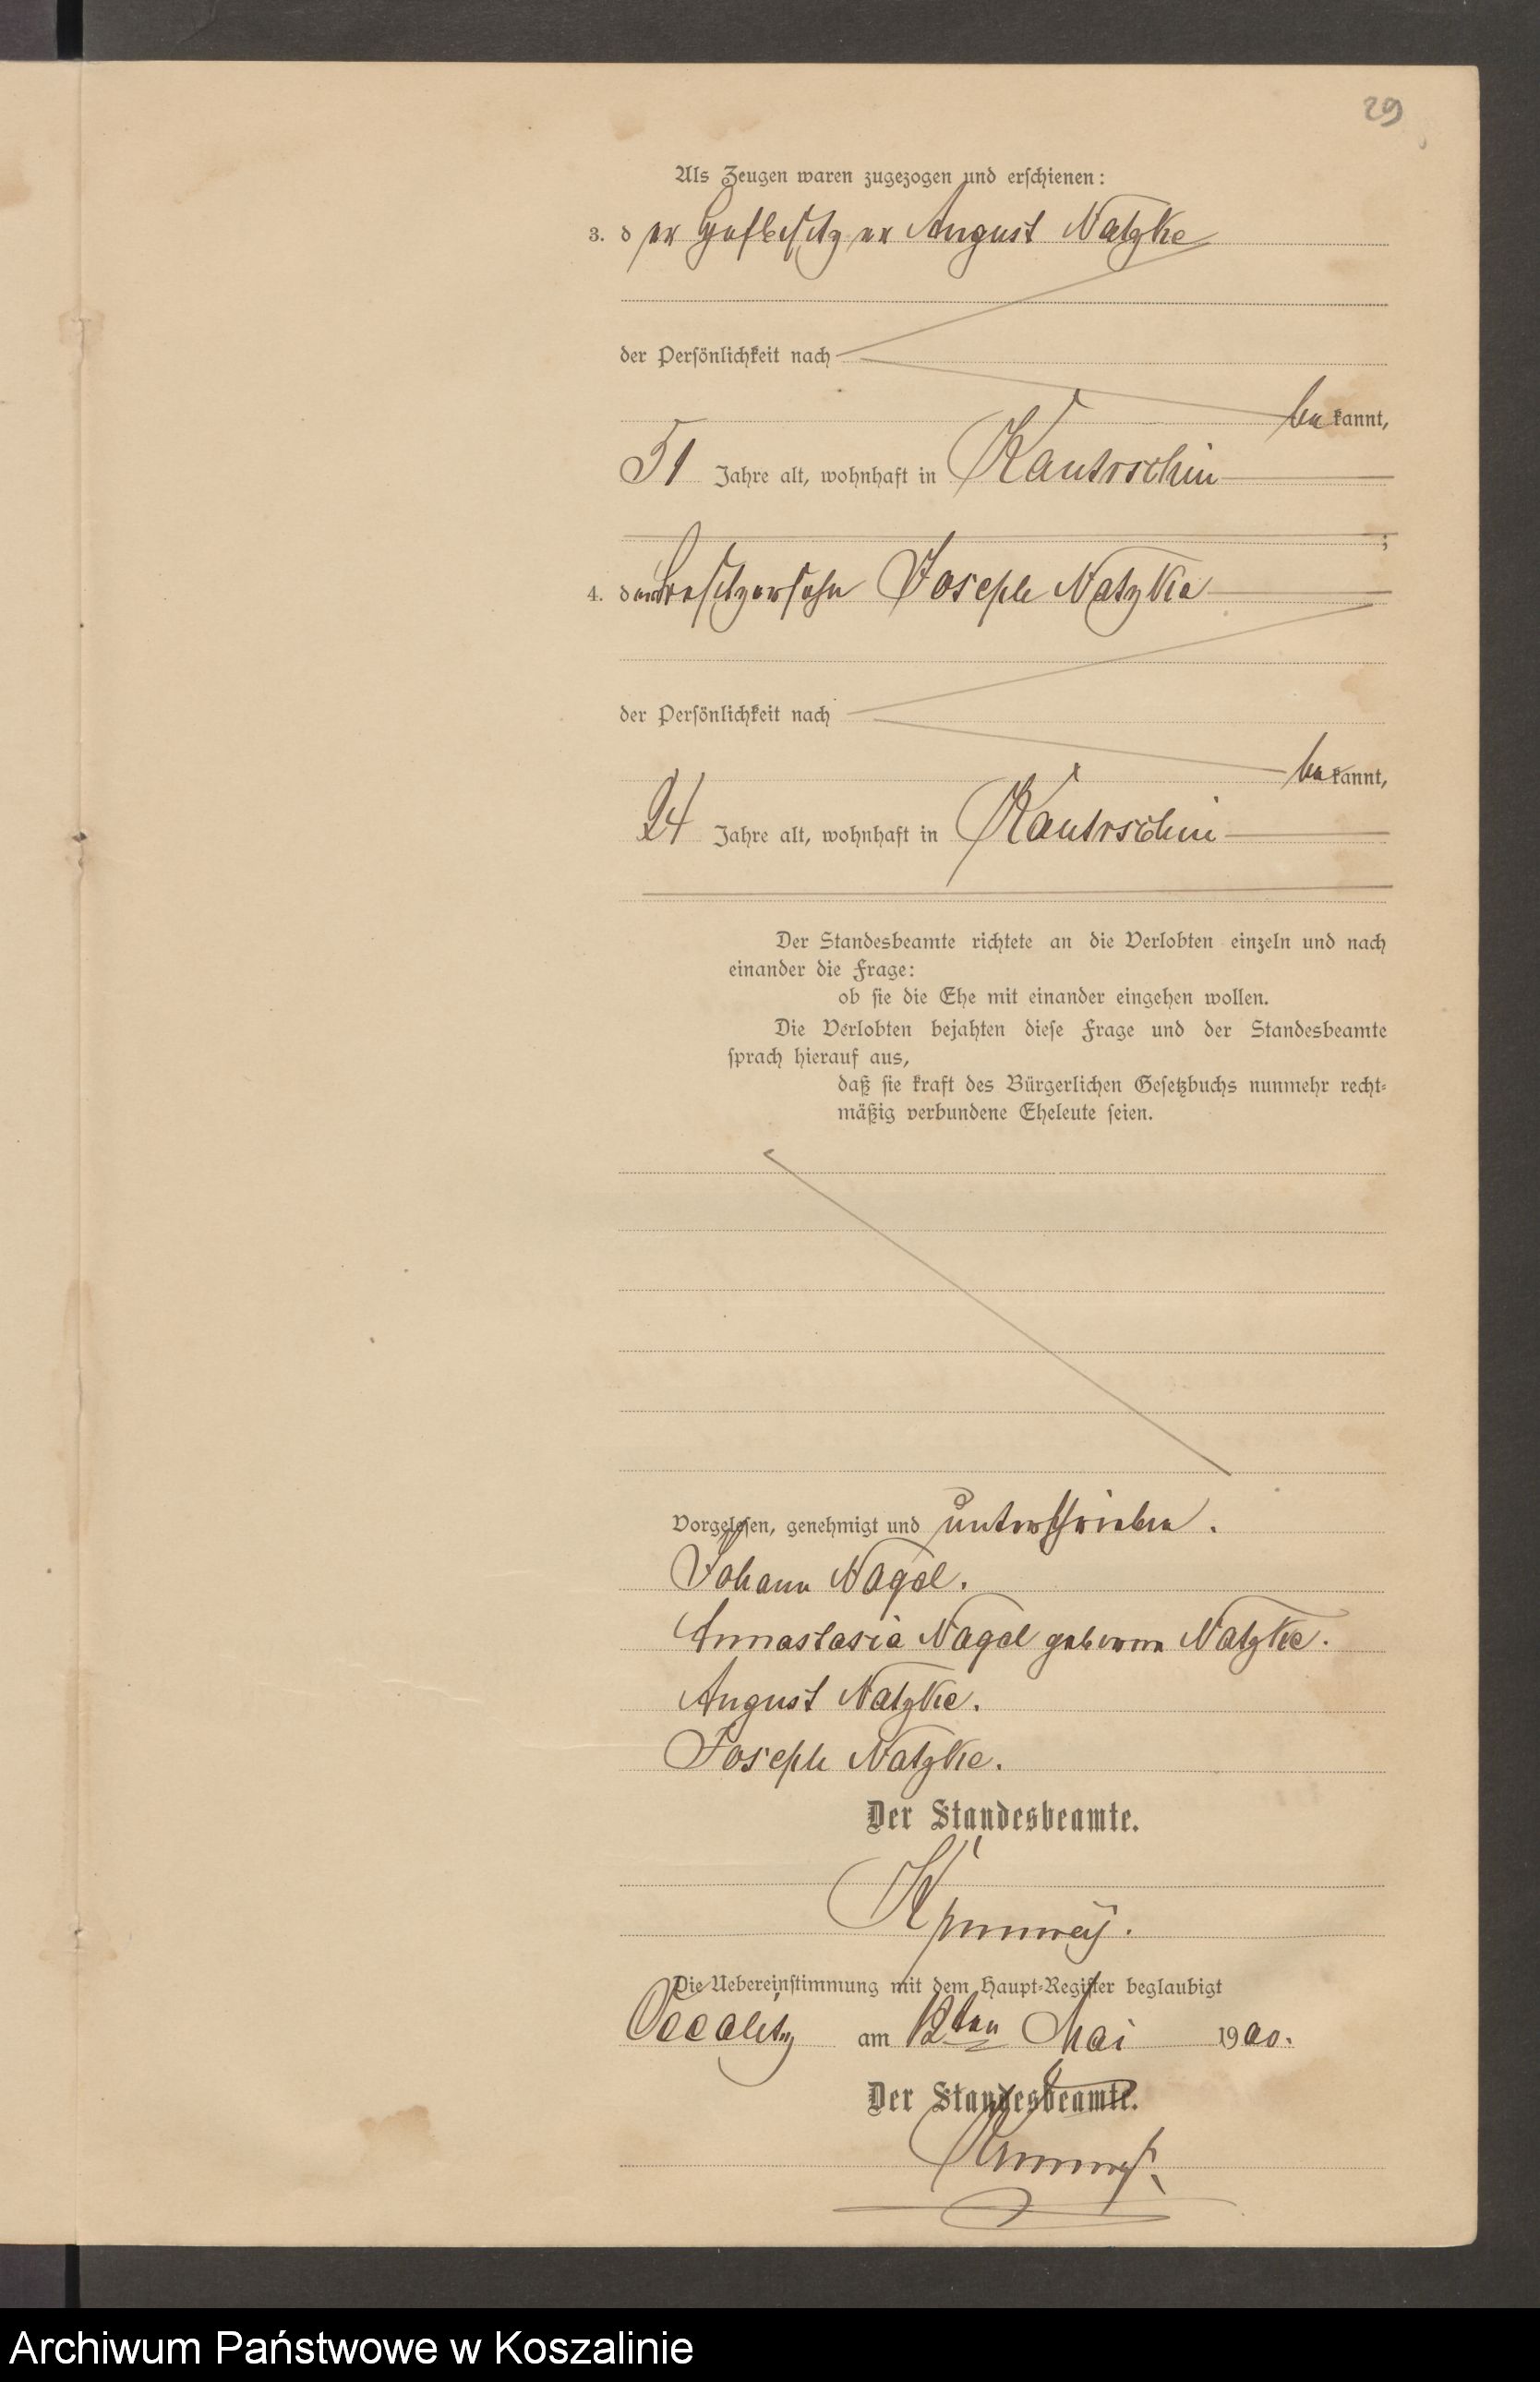 29
Als Zeugen waren zugezogen und erschienen:
3. der Hofbesitzer August Natzke
der Persönlichkeit nach
be kannt,
51 Jahre alt, wohnhaft in Kantrschin
;
4. der Besitzersohn Joseph Natzke
der Persönlichkeit nach
be kannt,
24 Jahre alt, wohnhaft in Kantrschin
Der Standesbeamte richtete an die Verlobten einzeln und nach
einander die Frage:
ob sie die Ehe mit einander eingehen wollen.
Die Verlobten bejahten diese Frage und der Standesbeamte
sprach hierauf aus,
daß sie kraft des Bürgerlichen Gesetzbuchs nunmehr recht-
mäßig verbundene Eheleute seien.
Vorgelesen, genehmigt und unterschrieben.
Johann Nagel.
Annastasia Nagel geborene Natzke.
August Natzke.
Joseph Natzke.
Der Standesbeamte.
Die Uebereinstimmung mit dem Haupt-Register beglaubigt
Occalitz am 12ten Mai 1900.
Der Standesbeamte.
Archiwum Państwowe w Koszalinie